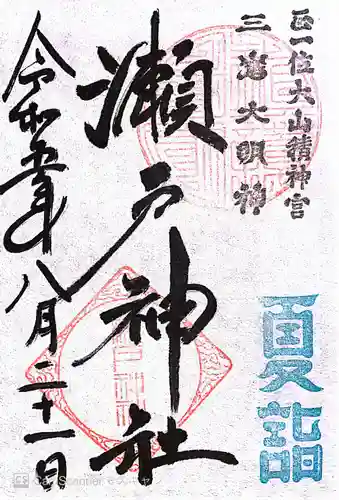 正一位大山積神宮
三嶌大明神
瀬戸神社
令和五年八月二十一日
夏詣
CamScanner でスキャン